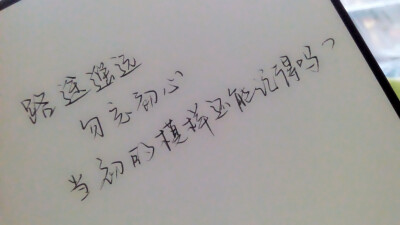 路途遥远
勿忘初心
当初的模样还能记得吗？